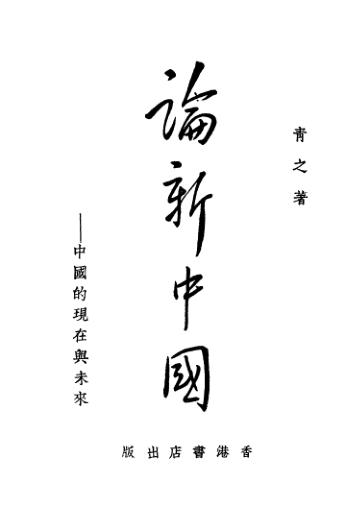 青之著
論新中國
——中國的現在與未來
香港書店出版